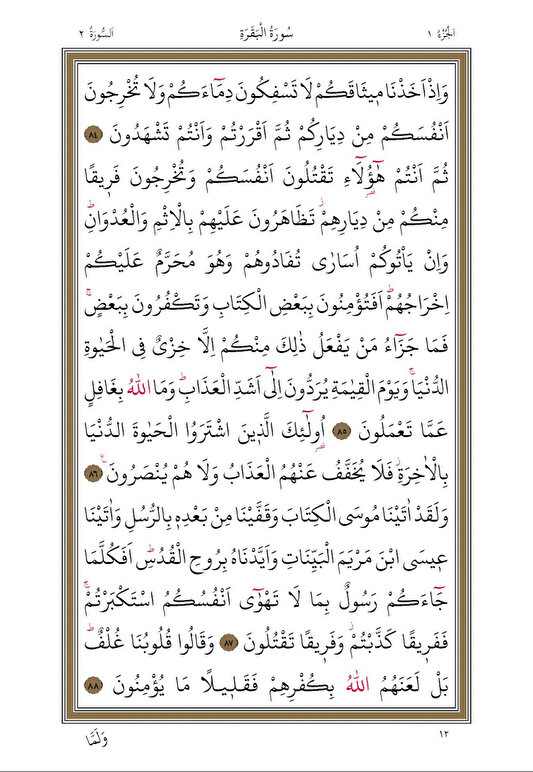 اَلْجُزْءُ ١ سُورَةُ الْبَقَرَةِ اَلسُّورَةُ ٢
وَاِذْ اَخَذْنَا م۪يثَاقَكُمْ لَا تَسْفِكُونَ دِمَٓاءَكُمْ وَلَا تُخْرِجُونَ
اَنْفُسَكُمْ مِنْ دِيَارِكُمْ ثُمَّ اَقْرَرْتُمْ وَاَنْتُمْ تَشْهَدُونَ ﴿٨٤﴾
ثُمَّ اَنْتُمْ هٰٓؤُ۬لَٓاءِ تَقْتُلُونَ اَنْفُسَكُمْ وَتُخْرِجُونَ فَر۪يقًا
مِنْكُمْ مِنْ دِيَارِهِمْۘ تَظَاهَرُونَ عَلَيْهِمْ بِالْاِثْمِ وَالْعُدْوَانِۜ
وَاِنْ يَأْتُوكُمْ اُسَارٰى تُفَادُوهُمْ وَهُوَ مُحَرَّمٌ عَلَيْكُمْ
اِخْرَاجُهُمْۜ اَفَتُؤْمِنُونَ بِبَعْضِ الْكِتَابِ وَتَكْفُرُونَ بِبَعْضٍۚ
فَمَا جَزَٓاءُ مَنْ يَفْعَلُ ذٰلِكَ مِنْكُمْ اِلَّا خِزْيٌ فِي الْحَيٰوةِ
الدُّنْيَاۚ وَيَوْمَ الْقِيٰمَةِ يُرَدُّونَ اِلٰٓى اَشَدِّ الْعَذَابِۜ وَمَا اللّٰهُ بِغَافِلٍ
عَمَّا تَعْمَلُونَ ﴿٨٥﴾ اُو۬لٰٓئِكَ الَّذ۪ينَ اشْتَرَوُا الْحَيٰوةَ الدُّنْيَا
بِالْاٰخِرَةِۘ فَلَا يُخَفَّفُ عَنْهُمُ الْعَذَابُ وَلَا هُمْ يُنْصَرُونَ۟ ﴿٨٦﴾
وَلَقَدْ اٰتَيْنَا مُوسَى الْكِتَابَ وَقَفَّيْنَا مِنْ بَعْدِه۪ بِالرُّسُلِ وَاٰتَيْنَا
ع۪يسَى ابْنَ مَرْيَمَ الْبَيِّنَاتِ وَاَيَّدْنَاهُ بِرُوحِ الْقُدُسِۜ اَفَكُلَّمَا
جَٓاءَكُمْ رَسُولٌ بِمَا لَا تَهْوٰٓى اَنْفُسُكُمُ اسْتَكْبَرْتُمْۚ
فَفَر۪يقًا كَذَّبْتُمْۘ وَفَر۪يقًا تَقْتُلُونَ ﴿٨٧﴾ وَقَالُوا قُلُوبُنَا غُلْفٌۜ
بَلْ لَعَنَهُمُ اللّٰهُ بِكُفْرِهِمْ فَقَل۪يلًا مَا يُؤْمِنُونَ ﴿٨٨﴾
١٢ وَلَمَّا